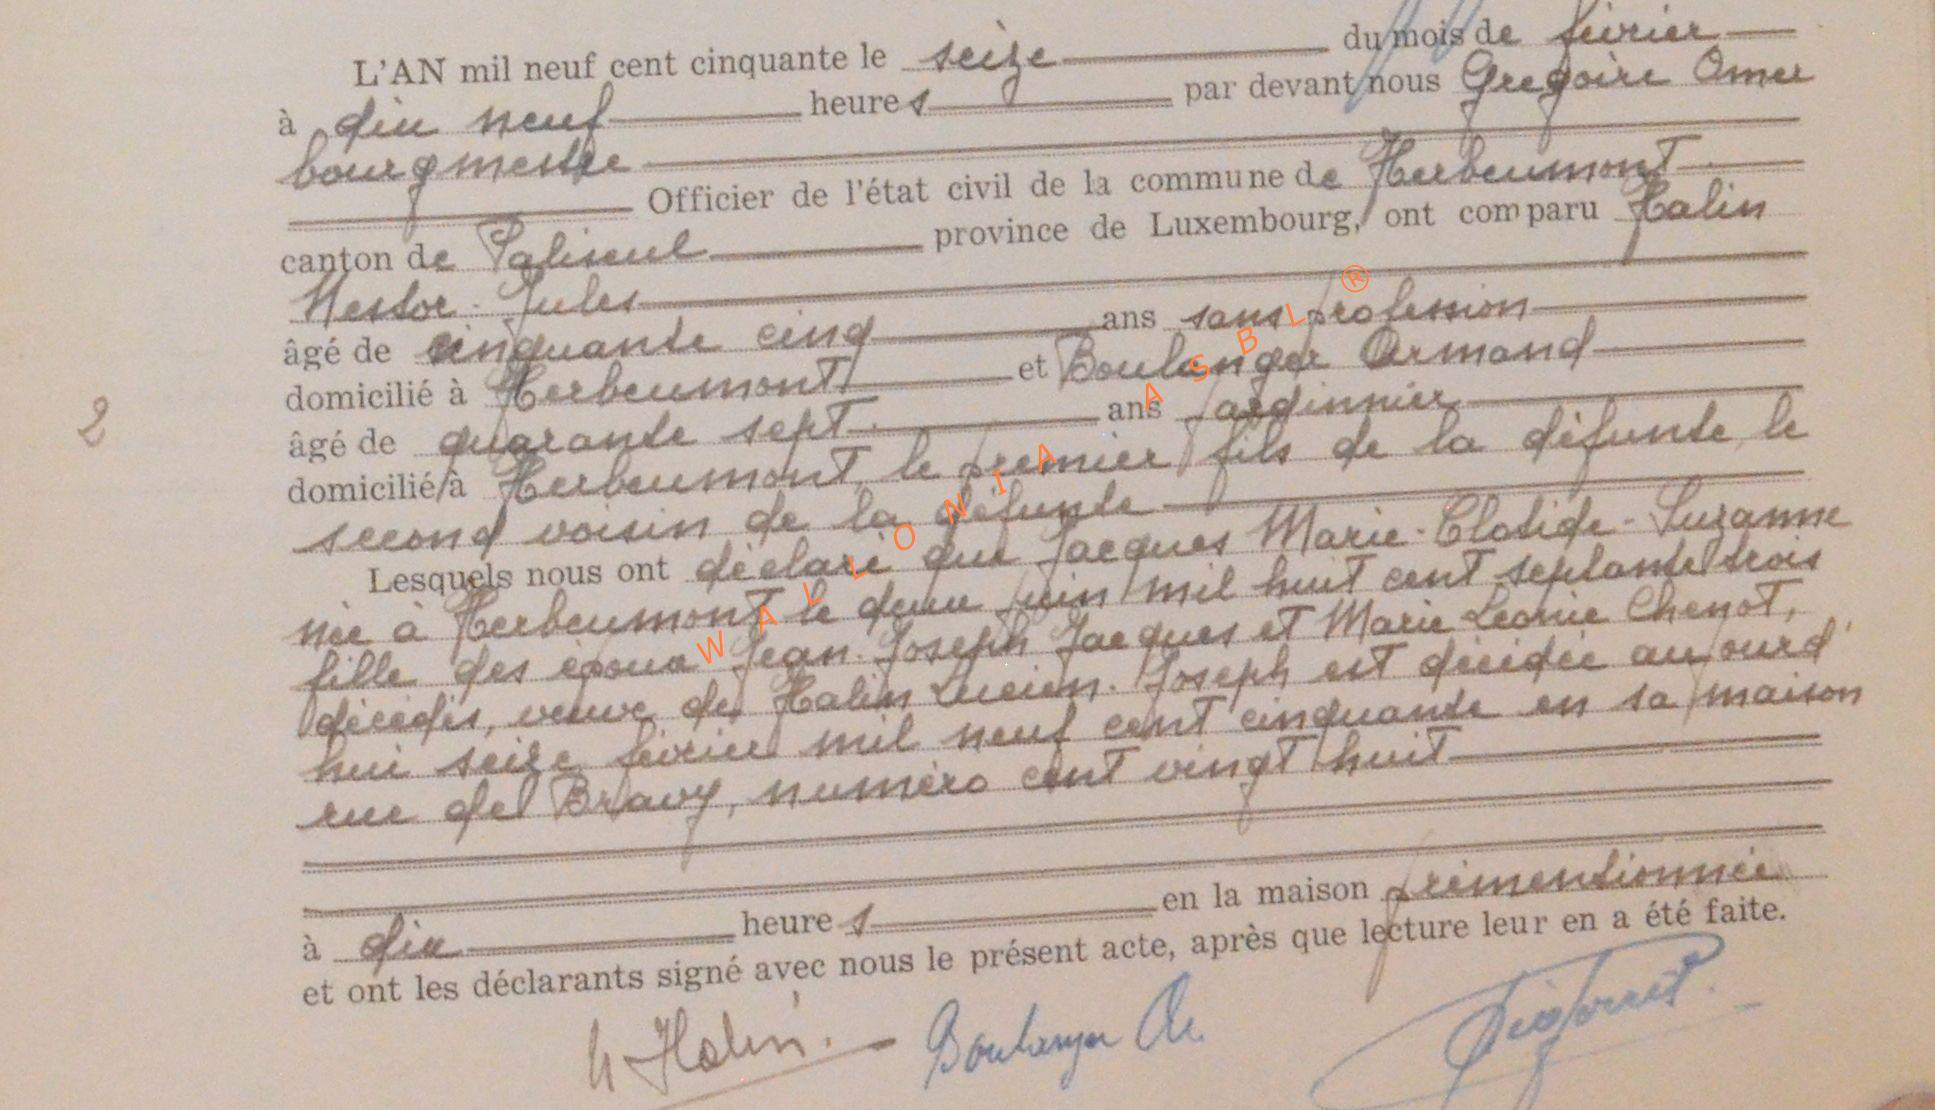 L'AN mil neuf cent cinquante le seize du mois de février
à dix neuf heures par devant nous Gregoire Omer
bourgmestre
Officier de l'état civil de la commune de Herbeumont
canton de Paliseul province de Luxembourg, ont comparu Halin
Nestor-Jules
âgé de cinquante cinq ans sans profession
domicilié à Herbeumont et Boulanger Armand
âgé de quarante sept ans jardinnier
2
domicilié à Herbeumont, le premier fils de la défunte, le
second voisin de la défunte
Lesquels nous ont déclaré que Jacques Marie-Clotide-Suzanne
née à Herbeumont le deux juin mil huit cent septante trois
fille des époux Jean-Joseph Jacques et Marie Léonie Chenot,
décédés, veuve de Halin Lucien-Joseph est décédée aujourd'
hui seize février mil neuf cent cinquante en sa maison
rue del Bravy, numéro cent vingt huit
à dix heures en la maison prémentionnée
et ont les déclarants signé avec nous le présent acte, après que lecture leur en a été faite.
N Halin. Boulanger Ar.
WALLONIA ASBL ®